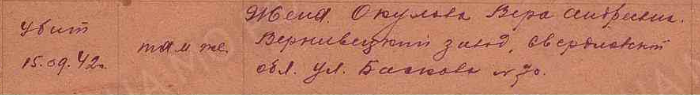 Убит
15.09.42г.
там же.
Жена. Окулова Вера Андреевна.
завод, Свердловской
обл. ул. Баскова №70.